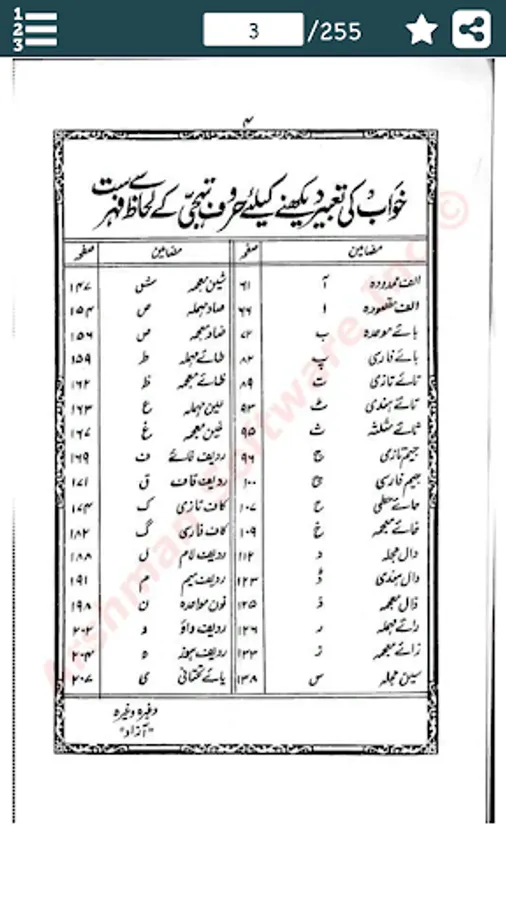 1
2
3
3 /255
۴
خواب کی تعبیر دیکھنے کیلئے حروف تہجی کے لحاظ سے فہرست
مضامین صفحہ مضامین صفحہ
الف ممدودہ آ ۶۱ شین معجمہ ش ۱۴۷
الف مقصورہ ا ۶۶ صاد مہملہ ص ۱۵۴
بائے موحدہ ب ۷۲ ضاد معجمہ ض ۱۵۶
بائے فارسی پ ۸۲ طائے مہملہ ط ۱۵۹
تائے تازی ت ۸۹ ظائے معجمہ ظ ۱۶۲
تائے ہندی ٹ ۹۳ عین مہملہ ع ۱۶۳
ثائے مثلثہ ث ۹۵ غین معجمہ غ ۱۶۷
جیم تازی ج ۹۶ ردیف فائے ف ۱۶۹
جیم فارسی چ ۱۰۰ ردیف قاف ق ۱۷۱
حائے حطی ح ۱۰۷ کاف تازی ک ۱۷۴
خائے معجمہ خ ۱۰۹ کاف فارسی گ ۱۸۲
دال مہملہ د ۱۱۲ ردیف لام ل ۱۸۸
دال ہندی ڈ ۱۲۳ ردیف میم م ۱۹۱
ذال معجمہ ذ ۱۲۵ نون مواحدہ ن ۱۹۸
رائے مہملہ ر ۱۲۶ ردیف واؤ و ۲۰۲
زائے معجمہ ز ۱۳۳ ردیف ہوز ہ ۲۰۴
سین مہملہ س ۱۳۸ یائے تحتانی ی ۲۰۷
وغیرہ وغیرہ
"آزاد"
Arshman Software Inc ©